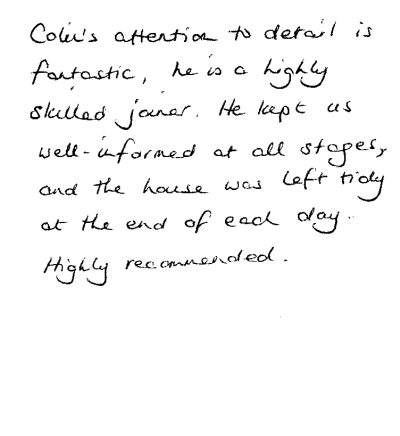 Colin's attention to detail is
fantastic, he is a highly
skilled joiner. He kept us
well-informed at all stages,
and the house was left tidy
at the end of each day.
Highly recommended.